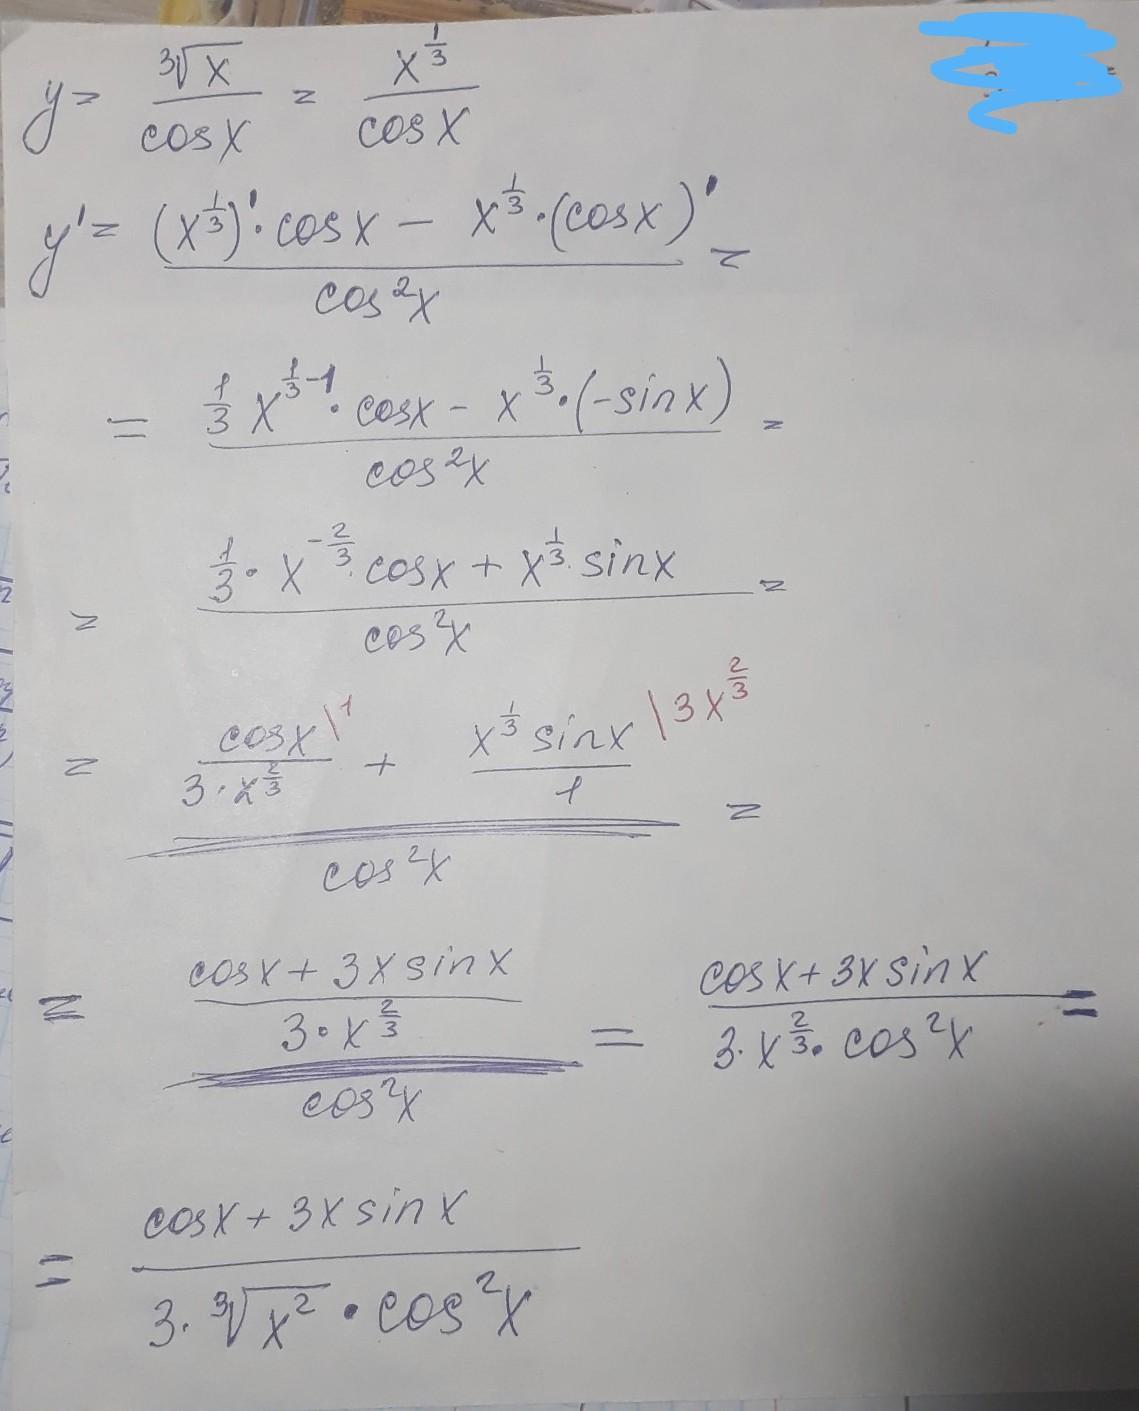 y = ∛x / cosx = x^(1/3) / cosx
y' = ((x^(1/3))' · cosx − x^(1/3) · (cosx)') / cos²x =
= (1/3 x^(1/3−1) · cosx − x^(1/3) · (−sinx)) / cos²x =
= (1/3 · x^(−2/3) · cosx + x^(1/3) · sinx) / cos²x =
= (cosx \1 / (3 · x^(2/3)) + x^(1/3) sinx \3x^(2/3) / 1) / cos²x =
= ((cosx + 3x sinx) / (3 · x^(2/3))) / cos²x = (cosx + 3x sinx) / (3 · x^(2/3) · cos²x) =
= (cosx + 3x sinx) / (3 · ∛x² · cos²x)